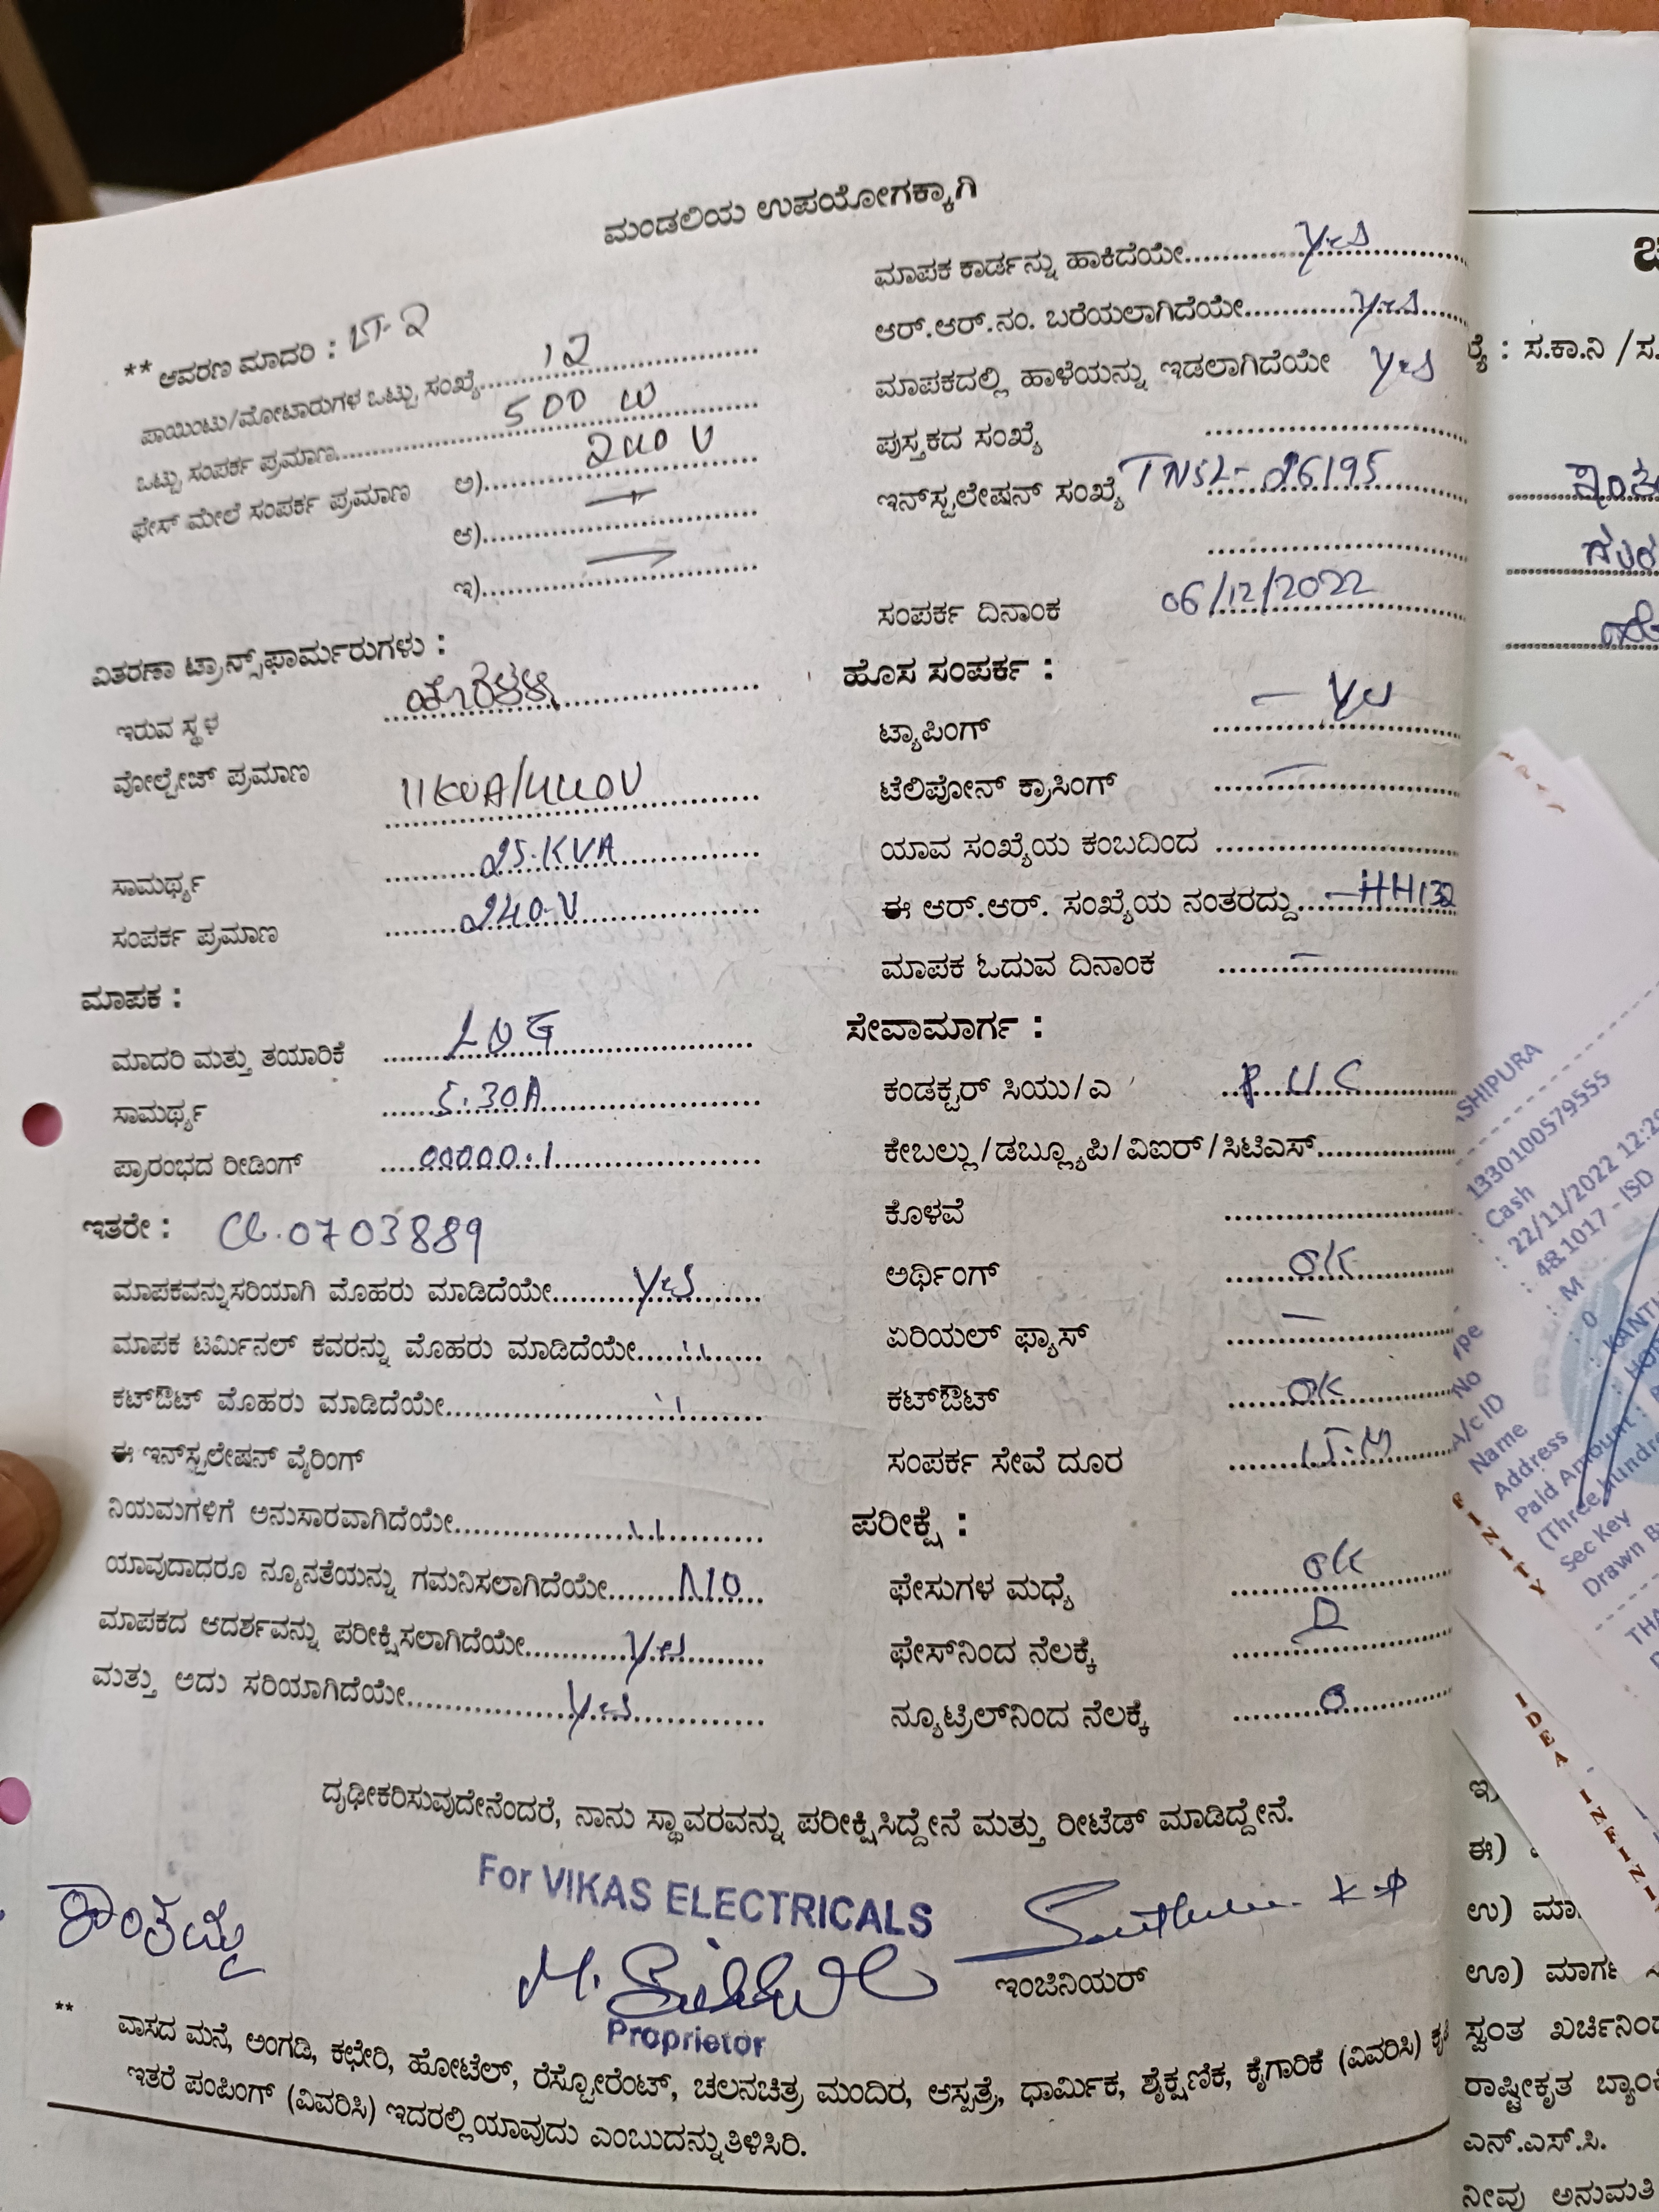 ಮಂಡಲಿಯ ಉಪಯೋಗಕ್ಕಾಗಿ
** ಆವರಣ ಮಾದರಿ : LT-2
ಪಾಯಿಂಟು/ಮೋಟಾರುಗಳ ಒಟ್ಟು ಸಂಖ್ಯೆ 12
ಒಟ್ಟು ಸಂಪರ್ಕ ಪ್ರಮಾಣ 500 W
ಫೇಸ್ ಮೇಲೆ ಸಂಪರ್ಕ ಪ್ರಮಾಣ ಅ) 240 V
ಆ)
ಇ)
ವಿತರಣಾ ಟ್ರಾನ್ಸ್‌ಫಾರ್ಮರುಗಳು :
ಇರುವ ಸ್ಥಳ
ವೋಲ್ಟೇಜ್ ಪ್ರಮಾಣ 11KVA/440V
ಸಾಮರ್ಥ್ಯ 25.KVA
ಸಂಪರ್ಕ ಪ್ರಮಾಣ 240.V
ಮಾಪಕ :
ಮಾದರಿ ಮತ್ತು ತಯಾರಿಕೆ LNG
ಸಾಮರ್ಥ್ಯ 5.30A
ಪ್ರಾರಂಭದ ರೀಡಿಂಗ್ 00000.1
ಇತರೇ : 0703889
ಮಾಪಕವನ್ನು ಸರಿಯಾಗಿ ಮೊಹರು ಮಾಡಿದೆಯೇ Yes
ಮಾಪಕ ಟರ್ಮಿನಲ್ ಕವರನ್ನು ಮೊಹರು ಮಾಡಿದೆಯೇ ''
ಕಟ್‌ಔಟ್ ಮೊಹರು ಮಾಡಿದೆಯೇ ''
ಈ ಇನ್‌ಸ್ಟಲೇಷನ್ ವೈರಿಂಗ್
ನಿಯಮಗಳಿಗೆ ಅನುಸಾರವಾಗಿದೆಯೇ ''
ಯಾವುದಾದರೂ ನ್ಯೂನತೆಯನ್ನು ಗಮನಿಸಲಾಗಿದೆಯೇ NO
ಮಾಪಕದ ಆದರ್ಶವನ್ನು ಪರೀಕ್ಷಿಸಲಾಗಿದೆಯೇ Yes
ಮತ್ತು ಅದು ಸರಿಯಾಗಿದೆಯೇ Yes
ಮಾಪಕ ಕಾರ್ಡನ್ನು ಹಾಕಿದೆಯೇ Yes
ಆರ್.ಆರ್.ನಂ. ಬರೆಯಲಾಗಿದೆಯೇ Yes
ಮಾಪಕದಲ್ಲಿ ಹಾಳೆಯನ್ನು ಇಡಲಾಗಿದೆಯೇ Yes
ಪುಸ್ತಕದ ಸಂಖ್ಯೆ
ಇನ್‌ಸ್ಟಲೇಷನ್ ಸಂಖ್ಯೆ TNSL-26195
ಸಂಪರ್ಕ ದಿನಾಂಕ 06/12/2022
ಹೊಸ ಸಂಪರ್ಕ :
ಟ್ಯಾಪಿಂಗ್ - Yes
ಟೆಲಿಪೋನ್ ಕ್ರಾಸಿಂಗ್ -
ಯಾವ ಸಂಖ್ಯೆಯ ಕಂಬದಿಂದ
ಈ ಆರ್.ಆರ್. ಸಂಖ್ಯೆಯ ನಂತರದ್ದು -HH132
ಮಾಪಕ ಓದುವ ದಿನಾಂಕ -
ಸೇವಾಮಾರ್ಗ :
ಕಂಡಕ್ಟರ್ ಸಿಯು/ಎ
ಕೇಬಲ್ಲು/ಡಬ್ಲ್ಯೂಪಿ/ವಿಐರ್/ಸಿಟಿಎಸ್
ಕೊಳವೆ
ಅರ್ಥಿಂಗ್ OK
ಏರಿಯಲ್ ಫ್ಯಾಸ್ -
ಕಟ್‌ಔಟ್ OK
ಸಂಪರ್ಕ ಸೇವೆ ದೂರ 15.M
ಪರೀಕ್ಷೆ :
ಫೇಸುಗಳ ಮಧ್ಯೆ OK
ಫೇಸ್‌ನಿಂದ ನೆಲಕ್ಕೆ
ನ್ಯೂಟ್ರಿಲ್‌ನಿಂದ ನೆಲಕ್ಕೆ
ದೃಢೀಕರಿಸುವುದೇನೆಂದರೆ, ನಾನು ಸ್ಥಾವರವನ್ನು ಪರೀಕ್ಷಿಸಿದ್ದೇನೆ ಮತ್ತು ರೀಟೆಡ್ ಮಾಡಿದ್ದೇನೆ.
For VIKAS ELECTRICALS
ಶಾಂತಮ್ಮ
ಇಂಜಿನಿಯರ್
Proprietor
** ವಾಸದ ಮನೆ, ಅಂಗಡಿ, ಕಛೇರಿ, ಹೋಟೆಲ್, ರೆಸ್ಟೋರೆಂಟ್, ಚಲನಚಿತ್ರ ಮಂದಿರ, ಆಸ್ಪತ್ರೆ, ಧಾರ್ಮಿಕ, ಶೈಕ್ಷಣಿಕ, ಕೈಗಾರಿಕೆ (ವಿವರಿಸಿ)
ಇತರೆ ಪಂಪಿಂಗ್ (ವಿವರಿಸಿ) ಇದರಲ್ಲಿ ಯಾವುದು ಎಂಬುದನ್ನು ತಿಳಿಸಿರಿ.
: ಸ.ಕಾ.ನಿ /ಸ.
SHIPURA
1330100579555
: Cash
: 22/11/2022 12:2
: 48.1017 - ISD
: M
: 0
No
A/c ID
Name
Address
Paid Amount :
(Three hundre
Sec Key
Drawn B
FINITY
IDEA INFINI
ಈ)
ಉ) ಮಾ
ಊ) ಮಾರ್ಗ
ಸ್ವಂತ ಖರ್ಚಿನಿಂದ
ರಾಷ್ಟ್ರೀಕೃತ ಬ್ಯಾಂಕ
ಎನ್.ಎಸ್.ಸಿ.
ನೀವು ಅನುಮತಿ